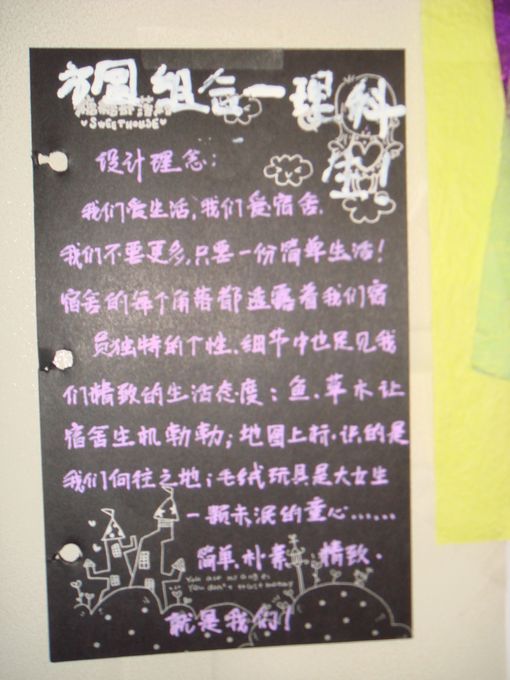 方圆组合一理科
生!
SWEETHOUSE
设计理念:
我们爱生活,我们爱宿舍.
我们不要更多,只要一份简单生活!
宿舍的每个角落都透露着我们宿
员独特的个性.细节中也足见我
们精致的生活态度:鱼、草木让
宿舍生机勃勃;地图上标识的是
我们向往之地;毛绒玩具是大女生
一颗未泯的童心……
简单.朴素.精致.
就是我们!